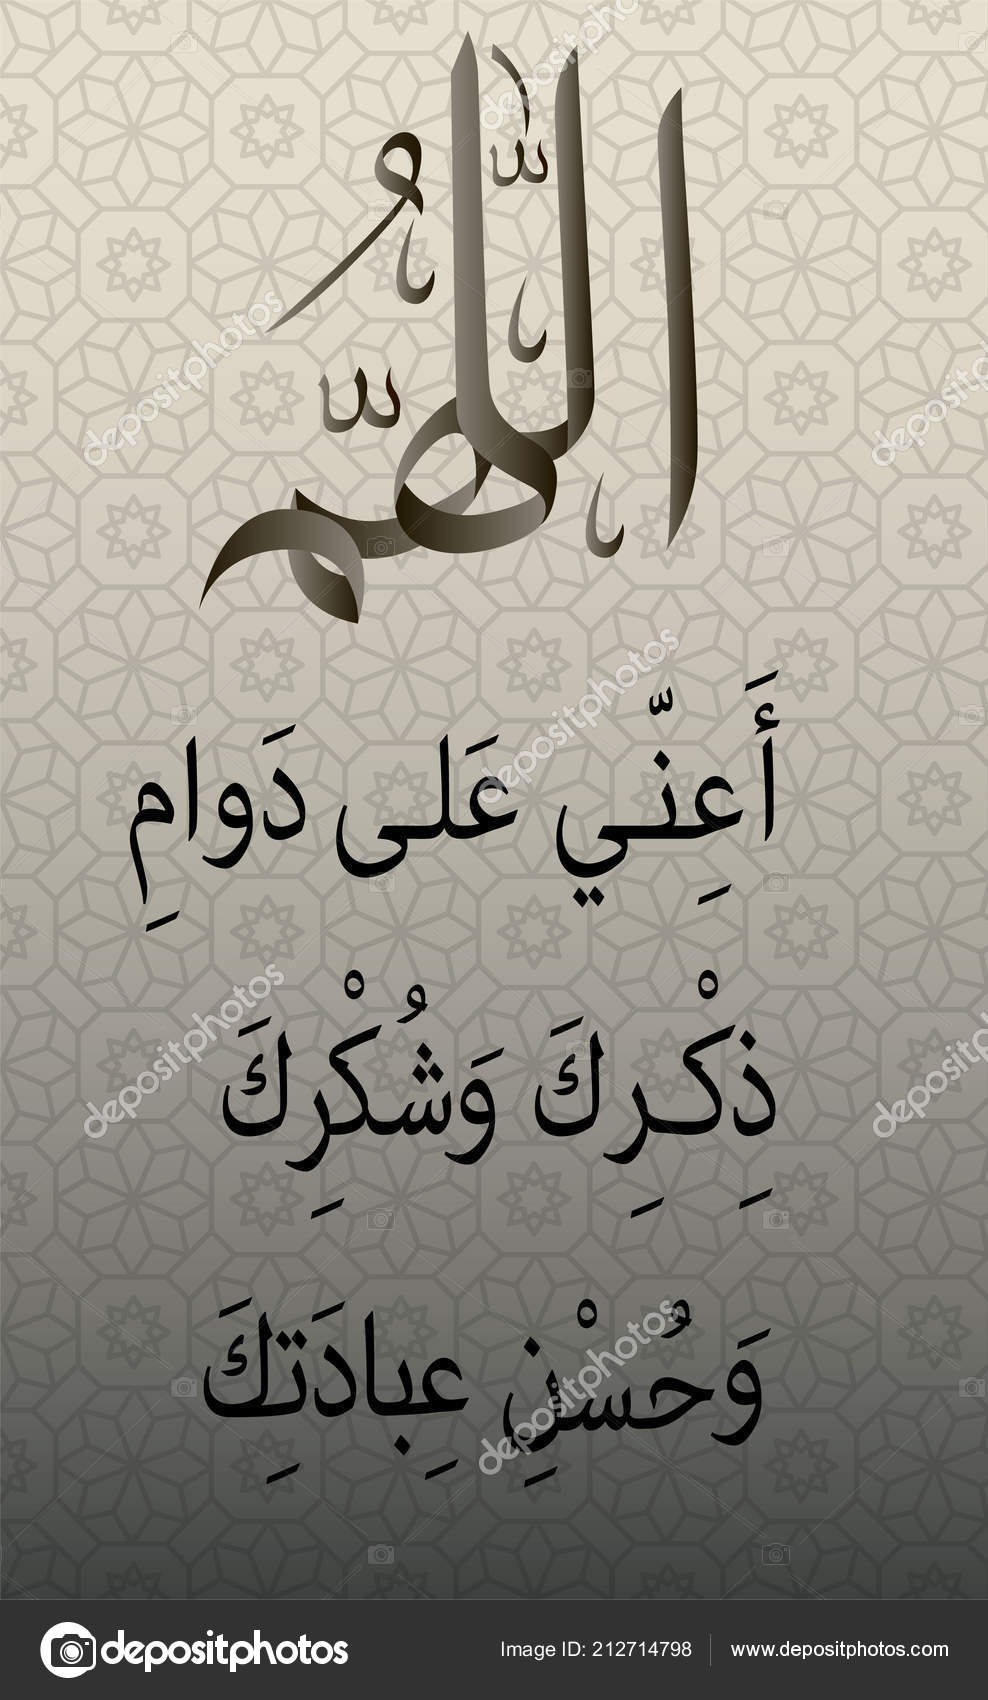 اللّٰهُمَّ
أَعِنّي عَلى دَوامِ
ذِكْرِكَ وَشُكْرِكَ
وَحُسْنِ عِبادَتِكَ
depositphotos
Image ID: 212714798 www.depositphotos.com